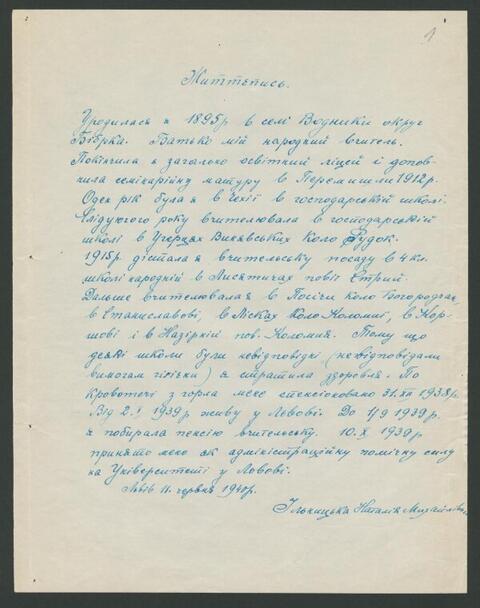 1
Життєпись.
Уродилась я 1895 р в селі Водники округ
Бібрка. Батько мій народний вчитель.
Покінчила я загально освітний ліцей і допов-
нила семінарійну матуру в Перемишли 1912 р.
Оден рік була я в Чехії в господарській школі.
Слідуючого року вчителювала в господарській
школі в Угерцях Винявських коло Рудок.
1915 р. дістала я вчительську посаду в 4 кл.
школі народній в Лисятичах повіт Стрий.
Дальше вчителювала я в Посічи коло Богородчан,
в Станиславові, в Пісках коло Коломиї, в Кор-
шові і в Назірній пов. Коломия. Тому що
деякі школи були невідповідні (невідповідали
вимогам гігієни) я стратила здоровля. По
кровотечі з горла мене спенсіоновано 31. XII 1938 р.
Від 2. I 1939 р живу у Львові. До 1/9 1939 р.
я побирала пенсію вчительську. 10. X 1939 р
принято мене як адміністраційну помічну силу
на Університеті у Львові.
Львів 11. червня 1940 р.
Ільницька Наталія Михайлівна